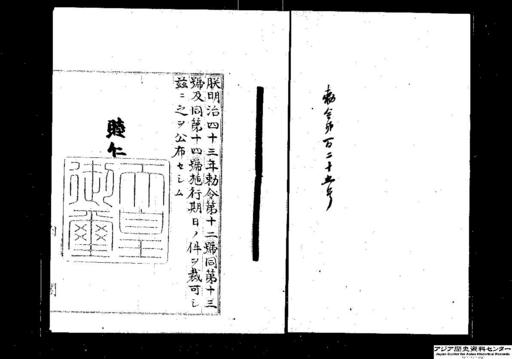 勅令第百二十五号
朕明治四十三年勅令第十二號同第十三
號及同第十四號施行期日ノ件ヲ裁可シ
茲ニ之ヲ公布セシム
睦仁
天皇
御璽
内閣
アジア歴史資料センター
Japan Center for Asian Historical Records